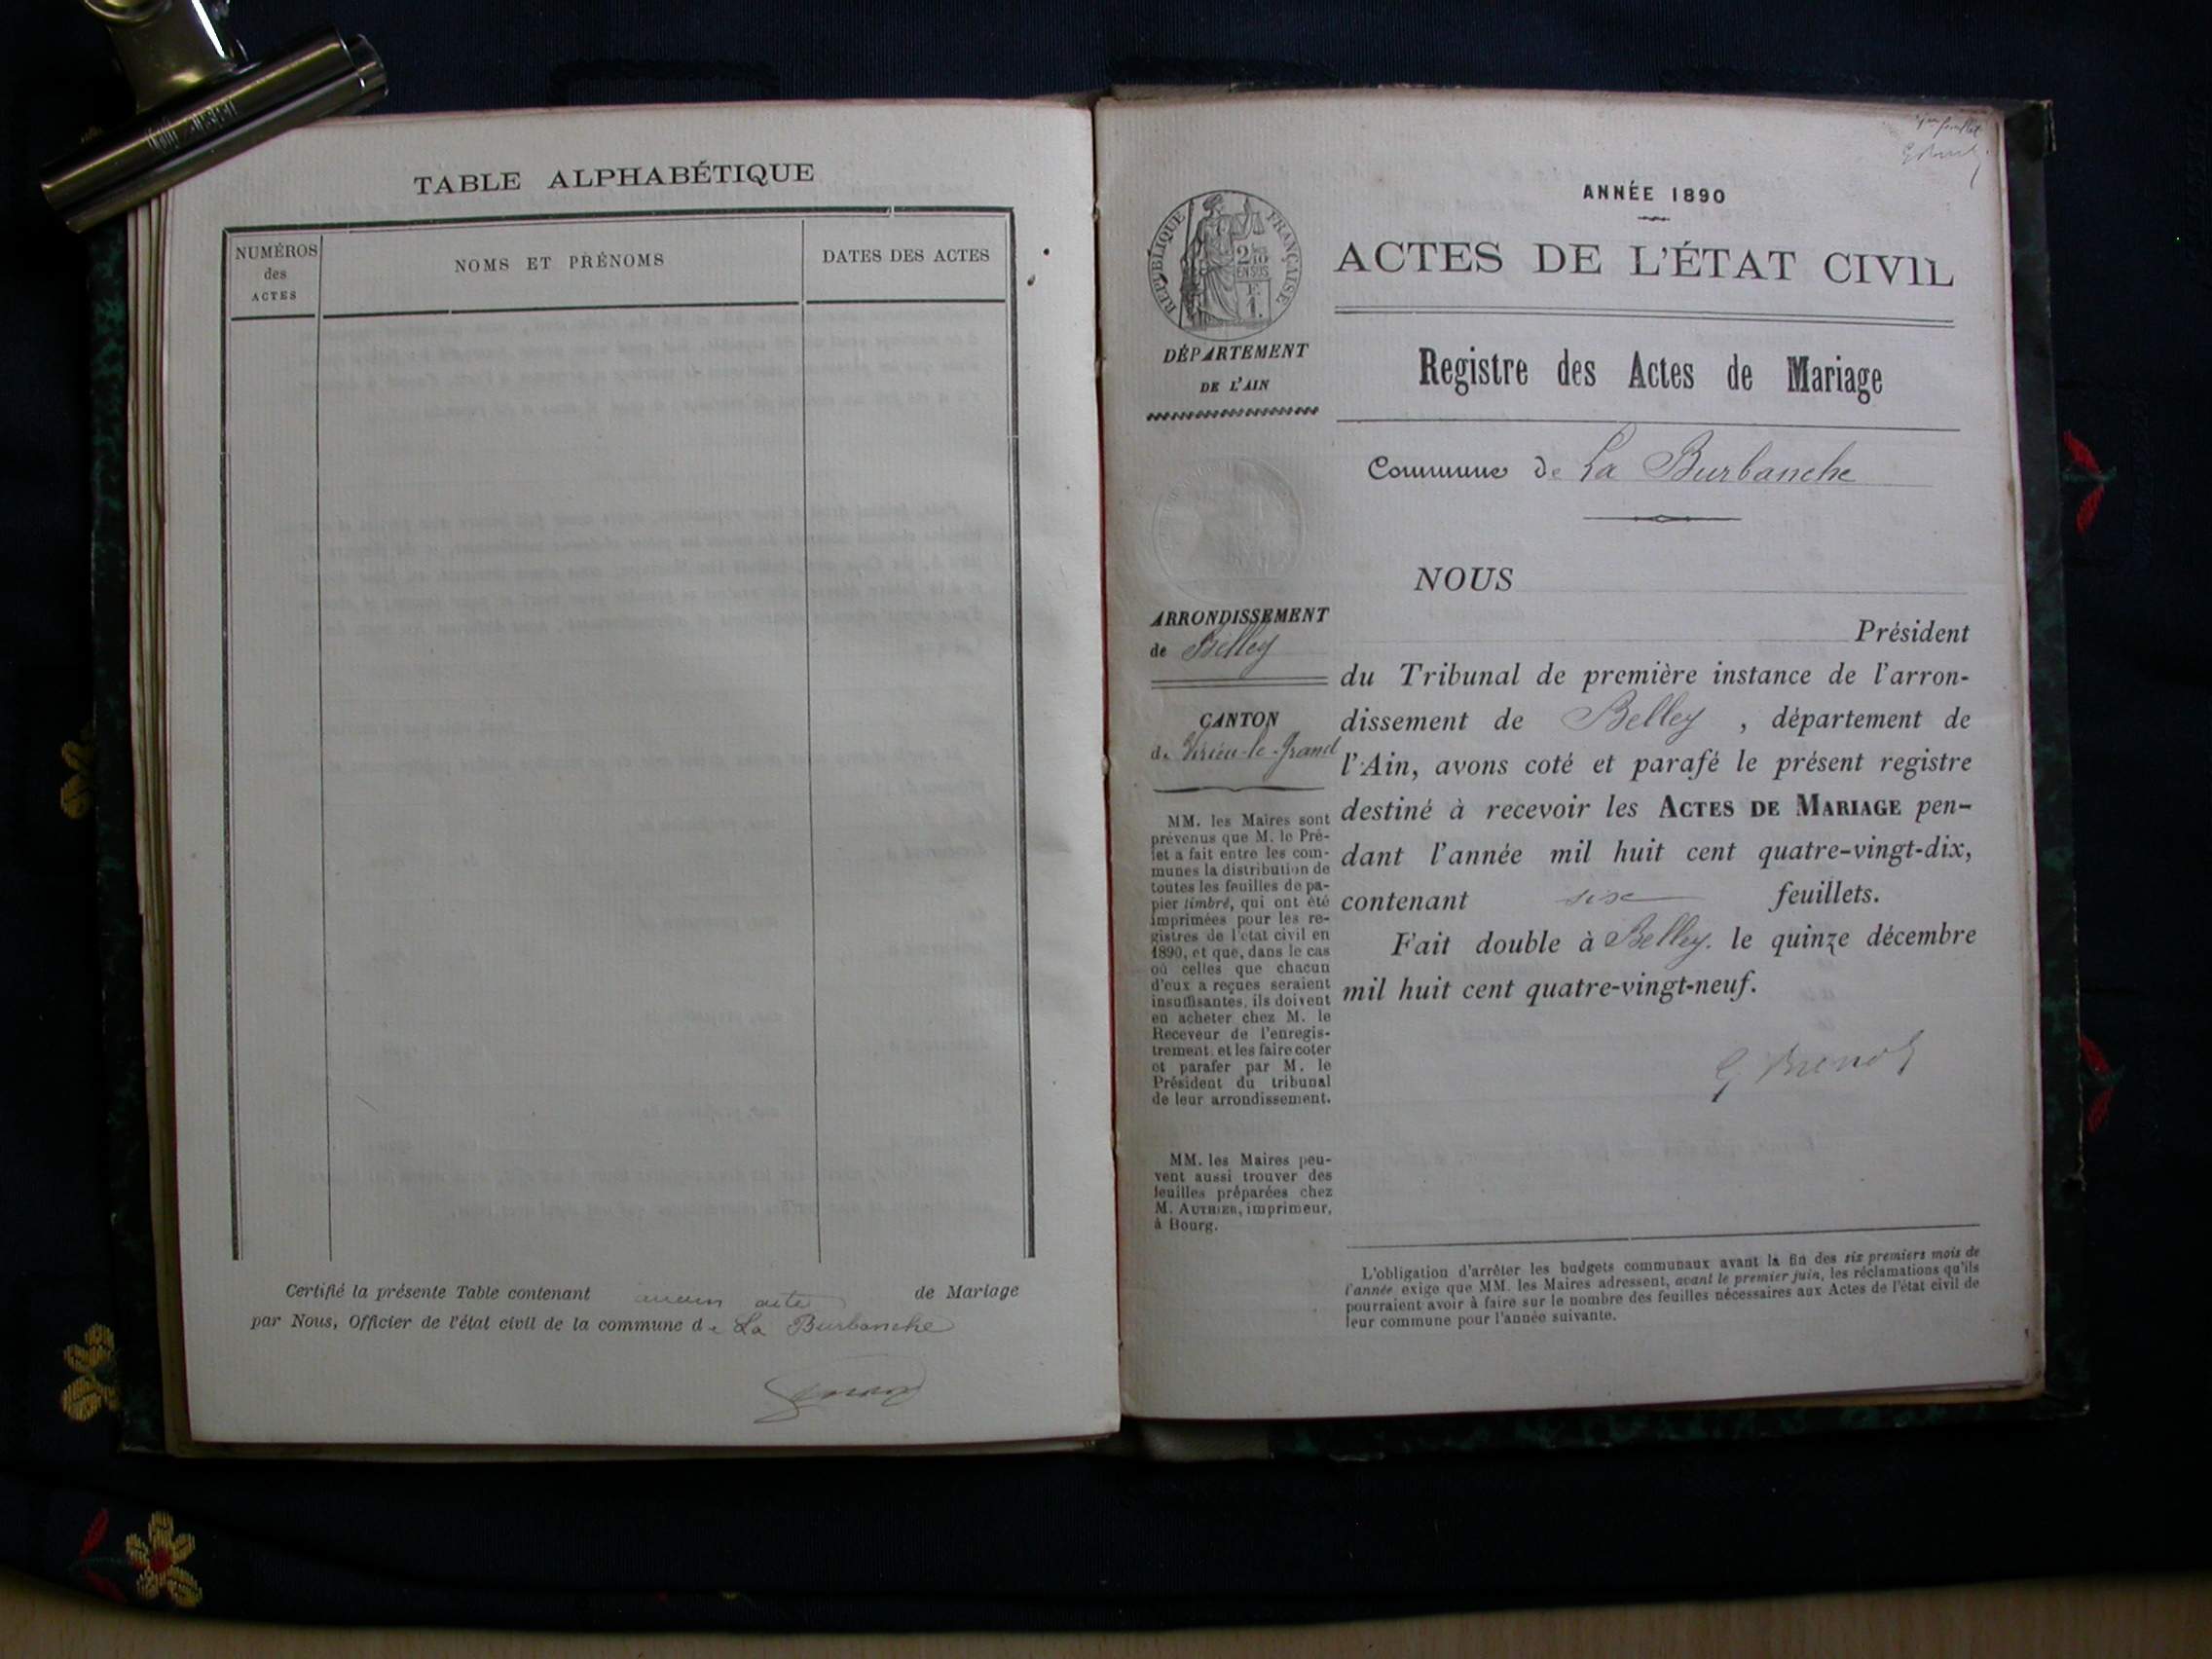 TABLE ALPHABÉTIQUE
NUMÉROS
des
ACTES
NOMS ET PRÉNOMS
DATES DES ACTES
Certifié la présente Table contenant aucun acte de Mariage
par Nous, Officier de l'état civil de la commune de La Burbanche
ANNÉE 1890
RÉPUBLIQUE FRANÇAISE
2/10
EN SUS
F.
1.
ACTES DE L'ÉTAT CIVIL
DÉPARTEMENT
DE L'AIN
Registre des Actes de Mariage
Commune de La Burbanche
NOUS
ARRONDISSEMENT
de Belley
CANTON
de Virieu-le-Grand
Président
du Tribunal de première instance de l'arron-
dissement de Belley , département de
l'Ain, avons coté et parafé le présent registre
destiné à recevoir les ACTES DE MARIAGE pen-
dant l'année mil huit cent quatre-vingt-dix,
contenant six feuillets.
Fait double à Belley. le quinze décembre
mil huit cent quatre-vingt-neuf.
MM. les Maires sont
prévenus que M. le Pré-
fet a fait entre les com-
munes la distribution de
toutes les feuilles de pa-
pier timbré, qui ont été
imprimées pour les re-
gistres de l'état civil en
1890, et que, dans le cas
où celles que chacun
d'eux a reçues seraient
insuffisantes, ils doivent
en acheter chez M. le
Receveur de l'enregis-
trement et les faire coter
et parafer par M. le
Président du tribunal
de leur arrondissement.
MM. les Maires peu-
vent aussi trouver des
feuilles préparées chez
M. AUTHIER, imprimeur,
à Bourg.
L'obligation d'arrêter les budgets communaux avant la fin des six premiers mois de
l'année exige que MM. les Maires adressent, avant le premier juin, les réclamations qu'ils
pourraient avoir à faire sur le nombre des feuilles nécessaires aux Actes de l'état civil de
leur commune pour l'année suivante.